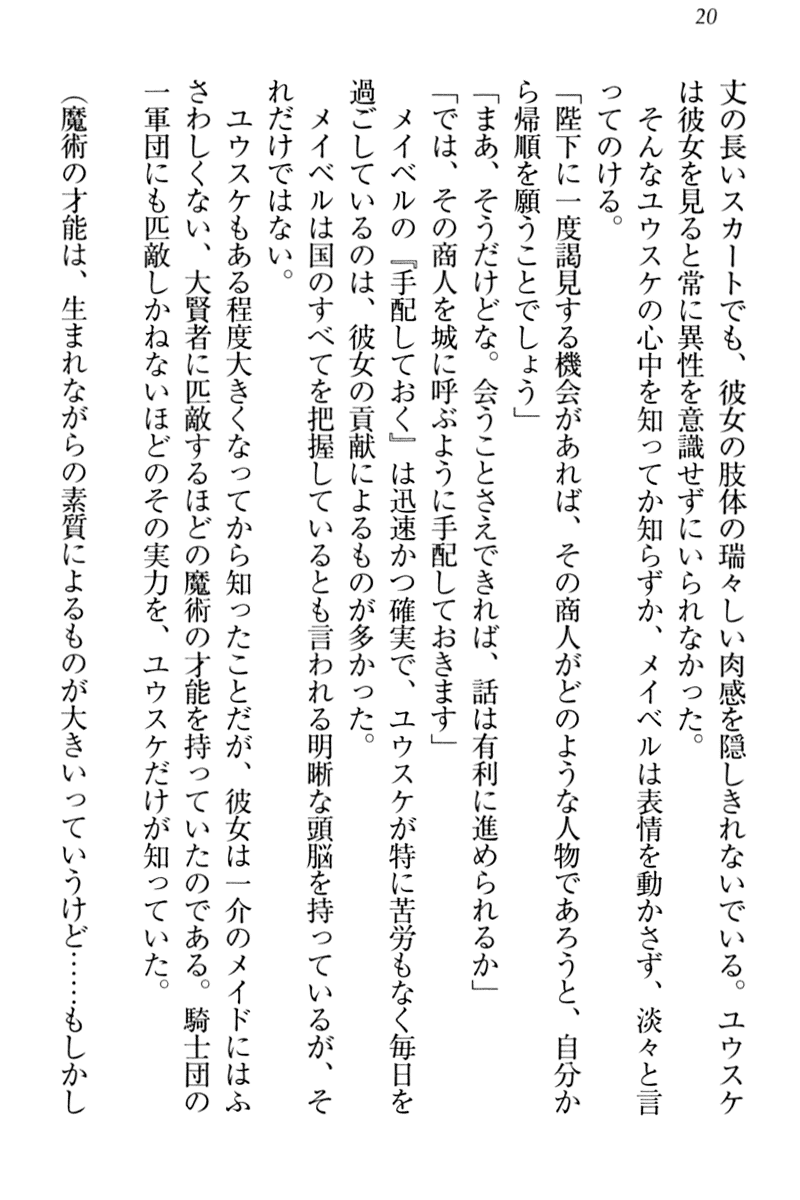 20
丈の長いスカートでも、彼女の肢体の瑞々しい肉感を隠しきれないでいる。ユウスケ
は彼女を見ると常に異性を意識せずにいられなかった。
そんなユウスケの心中を知ってか知らずか、メイベルは表情を動かさず、淡々と言
ってのける。
「陛下に一度謁見する機会があれば、その商人がどのような人物であろうと、自分か
ら帰順を願うことでしょう」
「まあ、そうだけどな。会うことさえできれば、話は有利に進められるか」
「では、その商人を城に呼ぶように手配しておきます」
メイベルの『手配しておく』は迅速かつ確実で、ユウスケが特に苦労もなく毎日を
過ごしているのは、彼女の貢献によるものが多かった。
メイベルは国のすべてを把握しているとも言われる明晰な頭脳を持っているが、そ
れだけではない。
ユウスケもある程度大きくなってから知ったことだが、彼女は一介のメイドにはふ
さわしくない、大賢者に匹敵するほどの魔術の才能を持っていたのである。騎士団の
一軍団にも匹敵しかねないほどのその実力を、ユウスケだけが知っていた。
（魔術の才能は、生まれながらの素質によるものが大きいっていうけど……もしかし